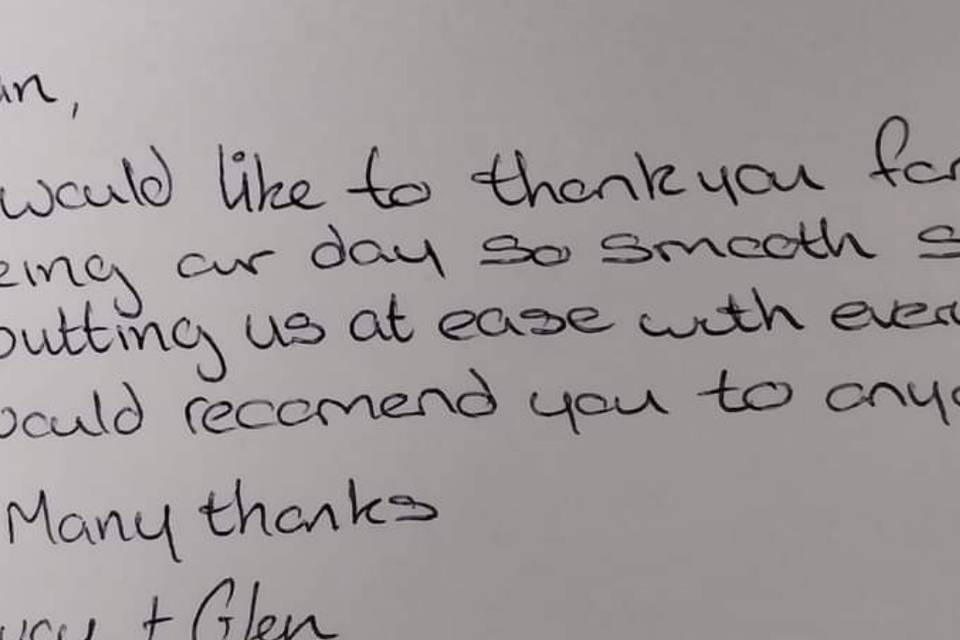 would like to thankyou for
our day so smooth
putting us at ease with
would recomend you to
Many thanks
+ Glen